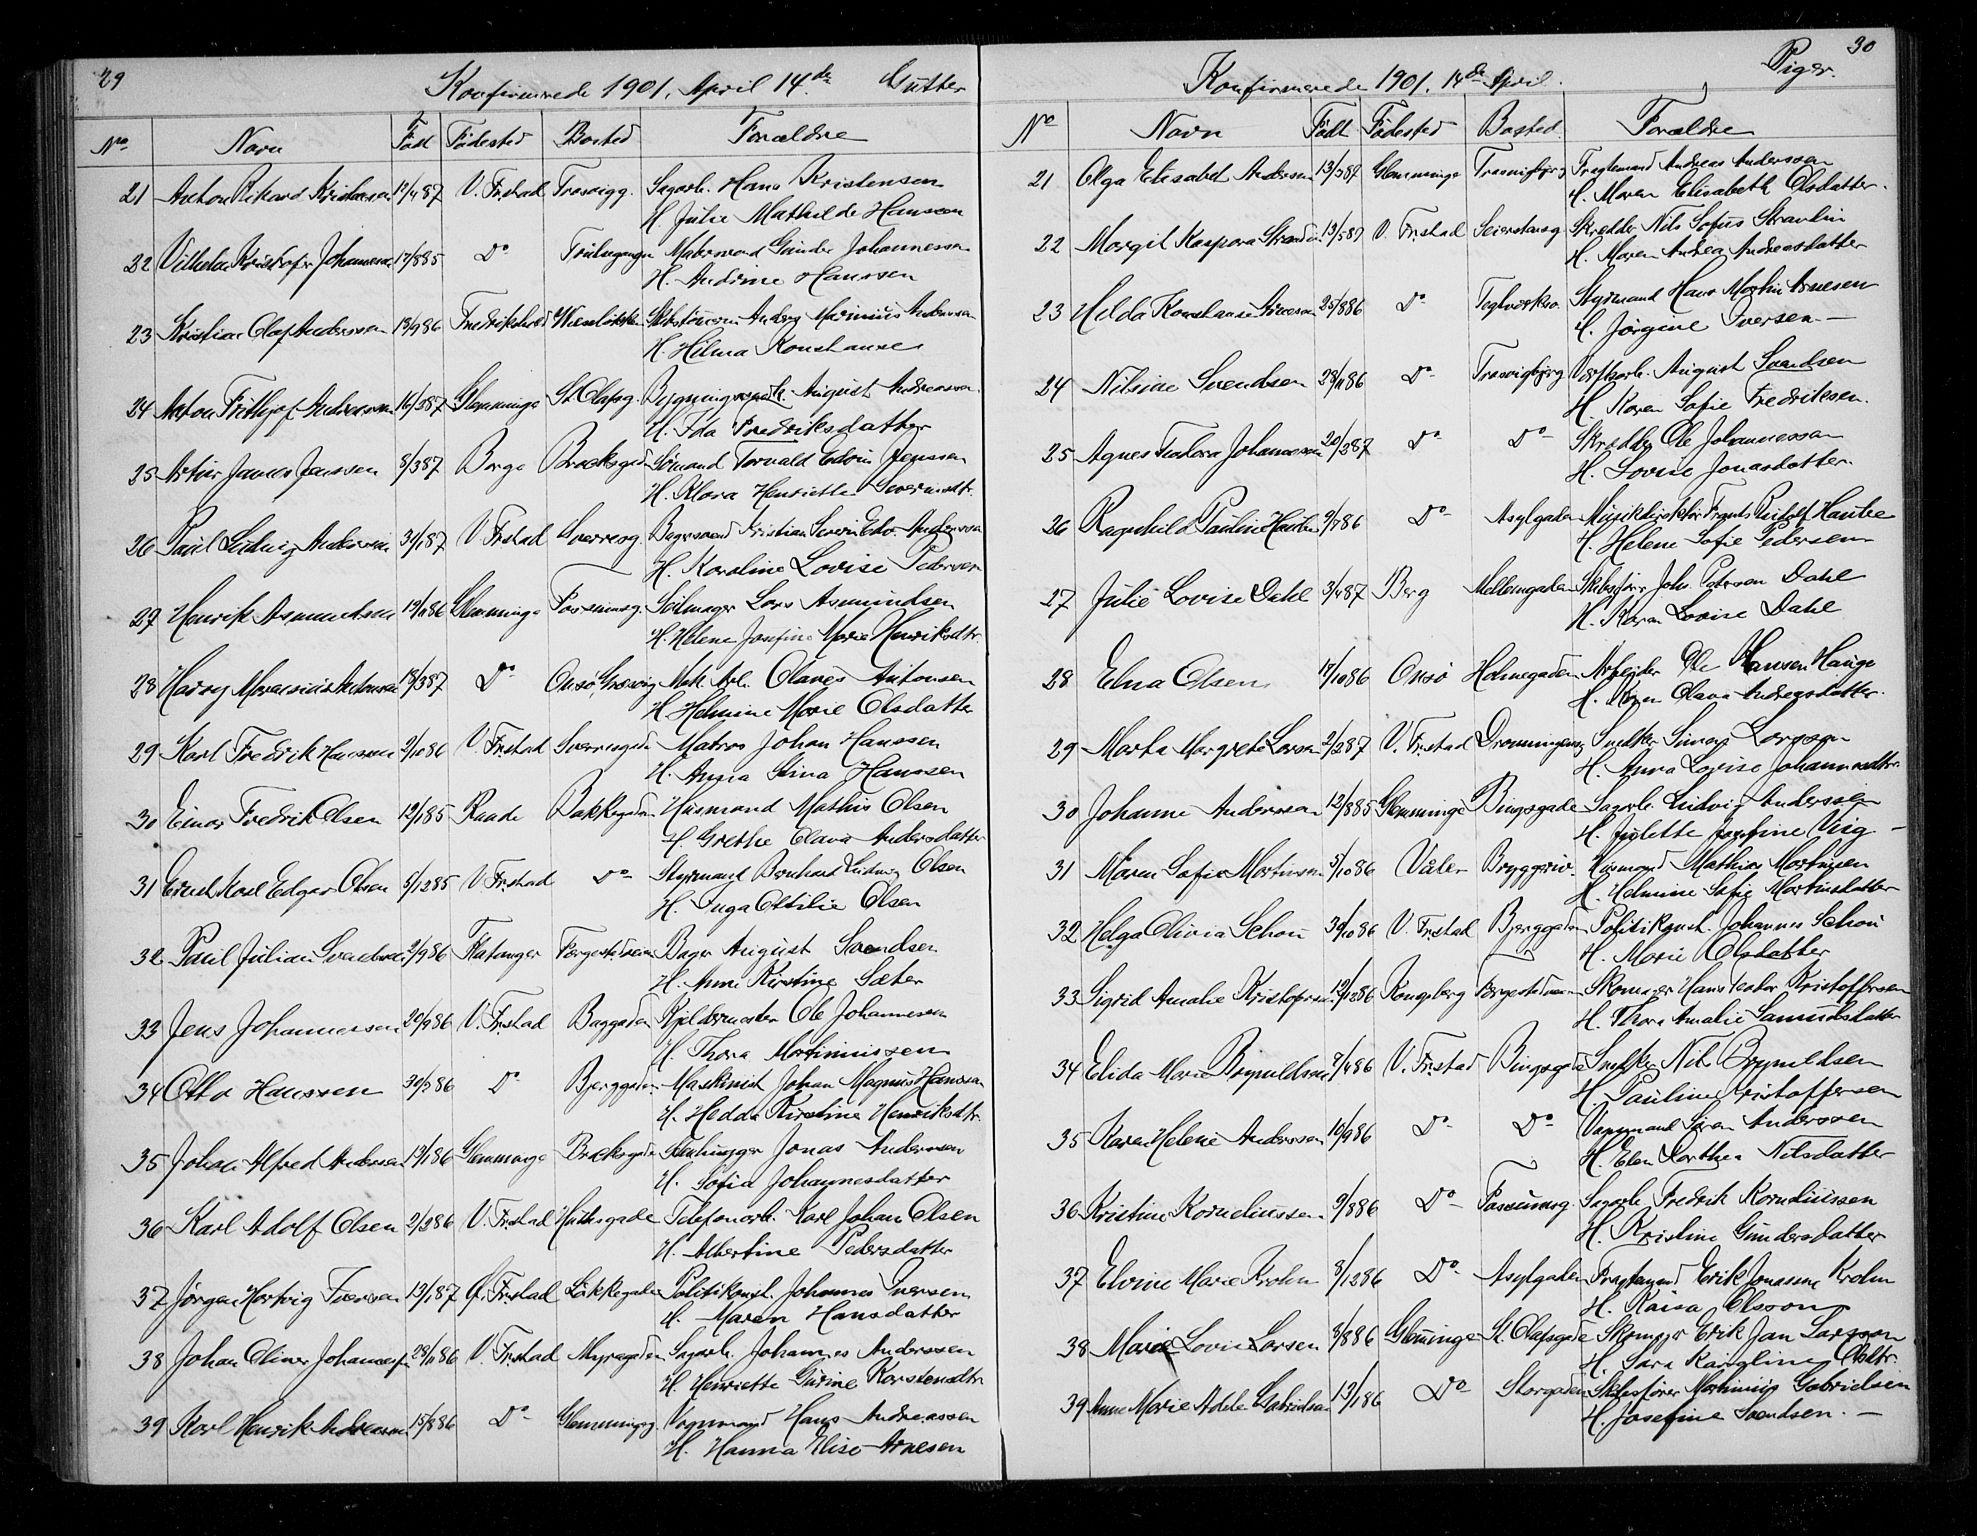 29
Konfirmerede 1901, April 14de Gutter
No Navn Född Födested Bosted Forældre
21 Anton Rikard Kristensen 17/4 87 V. Frstad Trosvigg. Sagarb. Hans Kristensen
H. Julie Mathilde Hansen
22 Vilhelm Kristofer Johannesen 17/8 85 Do Malersvend Gunder Johannessen
H. Andrine Hanssen
23 Kristian Olaf Anderssen 13/9 86 Fredrikshald Anders Marinius Anderssen
H. Hilma Konstanse
24 Anton Frithjof Andreassen 16/2 87 Glemminge St. Olafsg. Bygningssnedk. August Andreassen
H. Ida Fredriksdatter
25 Artur James Jenssen 8/3 87 Borge Brocksgaden Sömand Torvald Edvin Jenssen
H. Klara Henriette Severinsdtr.
26 Paul Ludvig Anderssen 31/1 87 V. Frstad Sverresg. Bagersvend Kristian Severin Edv. Anderssen
H. Karoline Lovise Pedersen
27 Henrik Asmundsen 19/10 86 Glemminge Fossumsg. Seilmager Lars Asmundsen
H. Helene Josefine Marie Henriksdtr.
28 Harry Maransius Antonsen 18/3 87 Do Onsö, Græsvig Mek. Arb. Olaves Antonsen
H. Helmine Marie Olsdatter
29 Karl Fredrik Hanssen 2/10 86 V. Frstad Sverresgaden Matros Johan Hanssen
H. Anna Stina Hanssen
30 Einar Fredrik Olsen 19/1 85 Raade Bakkegaden Husmand Mathis Olsen
H. Grethe Olava Andersdatter
31 Ernst Karl Edgar Olsen 8/12 85 V. Frstad Do Styrmand Bernhard Ludvig Olsen
H. Inga Ottilie Olsen
32 Paul Julian Svendsen 2/9 86 Flatanger Færgestedsveien Bager August Svendsen
H. Anne Kirstine Sæter
33 Jens Johannessen 20/9 86 V. Frstad Baggaden Kjeldermester Ole Johannesen
H. Thora Martiniussen
34 Otto Hanssen 30/3 86 Do Bjerggaden Maskinist Johan Magnus Hanssen
H. Hedda Kirstine Henriksdtr.
35 Johan Alfred Andersen 19/1 86 Glemminge Brocksgaden Stenhugger Jonas Anderssen
H. Sofia Johannesdatter
36 Karl Adolf Olsen 2/2 86 V. Frstad Huthsgade Telefonarb. Karl Johan Olsen
H. Albertine Pedersdatter
37 Jörgen Hertvig Iversen 13/1 87 G. Frstad Lökkegaden Politikonst. Johannes Iversen
H. Maren Hansdatter
38 Johan Oliver Johansen 28/10 86 V. Frstad Myragaden Sagarb. Johannes Anderssen
H. Henriette Gurine Karstensdtr
39 Karl Henrik Andreassen 15/8 86 Do Glemmingeg. Vognmand Hans Andreassen
H. Hanna Elise Arnesen
30
Konfirmerede 1901, 14de April. Piger.
No Navn Född Födested Bosted Forældre
21 Olga Elisabet Andersen 13/3 87 Glemminge Trosvigbjerg Fragtemand Andreas Anderssen
H. Maren Elisabeth Olsdatter.
22 Margit Kaspara Strandin 13/5 87 V. Frstad Seierstensg Skrædder Nils Sofus Strandin
H. Maren Andrea Andreasdatter
23 Hilda Konstanse Arnesen 25/8 86 Do Teglværksv. Styrmand Hans Martin Arnesen
H. Jörgine Iversen —
24 Nilsine Svendsen 28/11 86 Do Trosvigbjerg Værftsarb. August Svendsen
H. Karen Sofie Fredriksen.
25 Agnes Teodora Johannessen 20/2 87 Do Do Skrædder Ole Johannessen
H. Lovise Jonasdatter.
26 Ragnhild Pauline 9/7 86 Do Asylgaden Musikdirektör Frants Rudolf
H. Helene Sofie Pedersen
27 Julie Lovise Dahl 3/4 87 Berg Mellemgaden Skibsförer Joh. Petersen Dahl
H. Karen Lovise Dahl
28 Elna Olsen 17/10 86 Onsö Holmegaden Arbeider Ole Hansen Hauge
H. Karen Olava Andreasdatter.
29 Marta Margrete Larsen 2/2 87 V. Frstad Dronningensg Snedker Simon Larssen
H. Anna Lovise Johannesdtr.
30 Johanne Anderssen 12/8 85 Glemminge Bingsgade Sagarb. Ludvig Anderssen
H. Julette Josefine Viig —
31 Maren Sofie Martinsen 5/10 86 Våler Bryggeriv. Husmand Mathias Martinsen
H. Helmine Sofie Martinsdatter
32 Helga Olivia Schou 30/10 86 V. Frstad Bjerggaten Politikonst. Johannes Schou
H. Marie Olsdatter
33 Sigrid Amalie Kristofersen 19/12 86 Kongsberg Færgestedsveien Skomager Hans Teodor Kristoffersen
H. Thora Amalie Samuelsdatter
34 Elida Marie Brynildsen 7/4 86 V. Frstad Bingsgade Snedker Nils Brynildsen
H. Pauline Kristoffersen
35 Karen Helene Anderssen 10/9 86 Do Do Vognmand Sören Anderssen
H. Elen Dorthea Nilsdatter
36 Kristine Korneliussen 9/8 86 Do Fossumsg. Sagarb. Fredrik Korneliussen
H. Kristine Gundersdatter
37 Elvine Marie Krohn 8/12 86 Do Asylgaden Fragtemand Erik Jonassen Krohn
H. Kaisa Olsson
38 Marie Lovise Larsen 8/8 86 Glemminge St. Olafsgade Skomager Erik Jan Larsson
H. Sara Karoline Olsdtr.
39 Anne Marie Adele Gabrielsen 13/1 86 Do Storgaden Skibsförer Martinius Gabrielsen
H. Josefine Svendsen. —